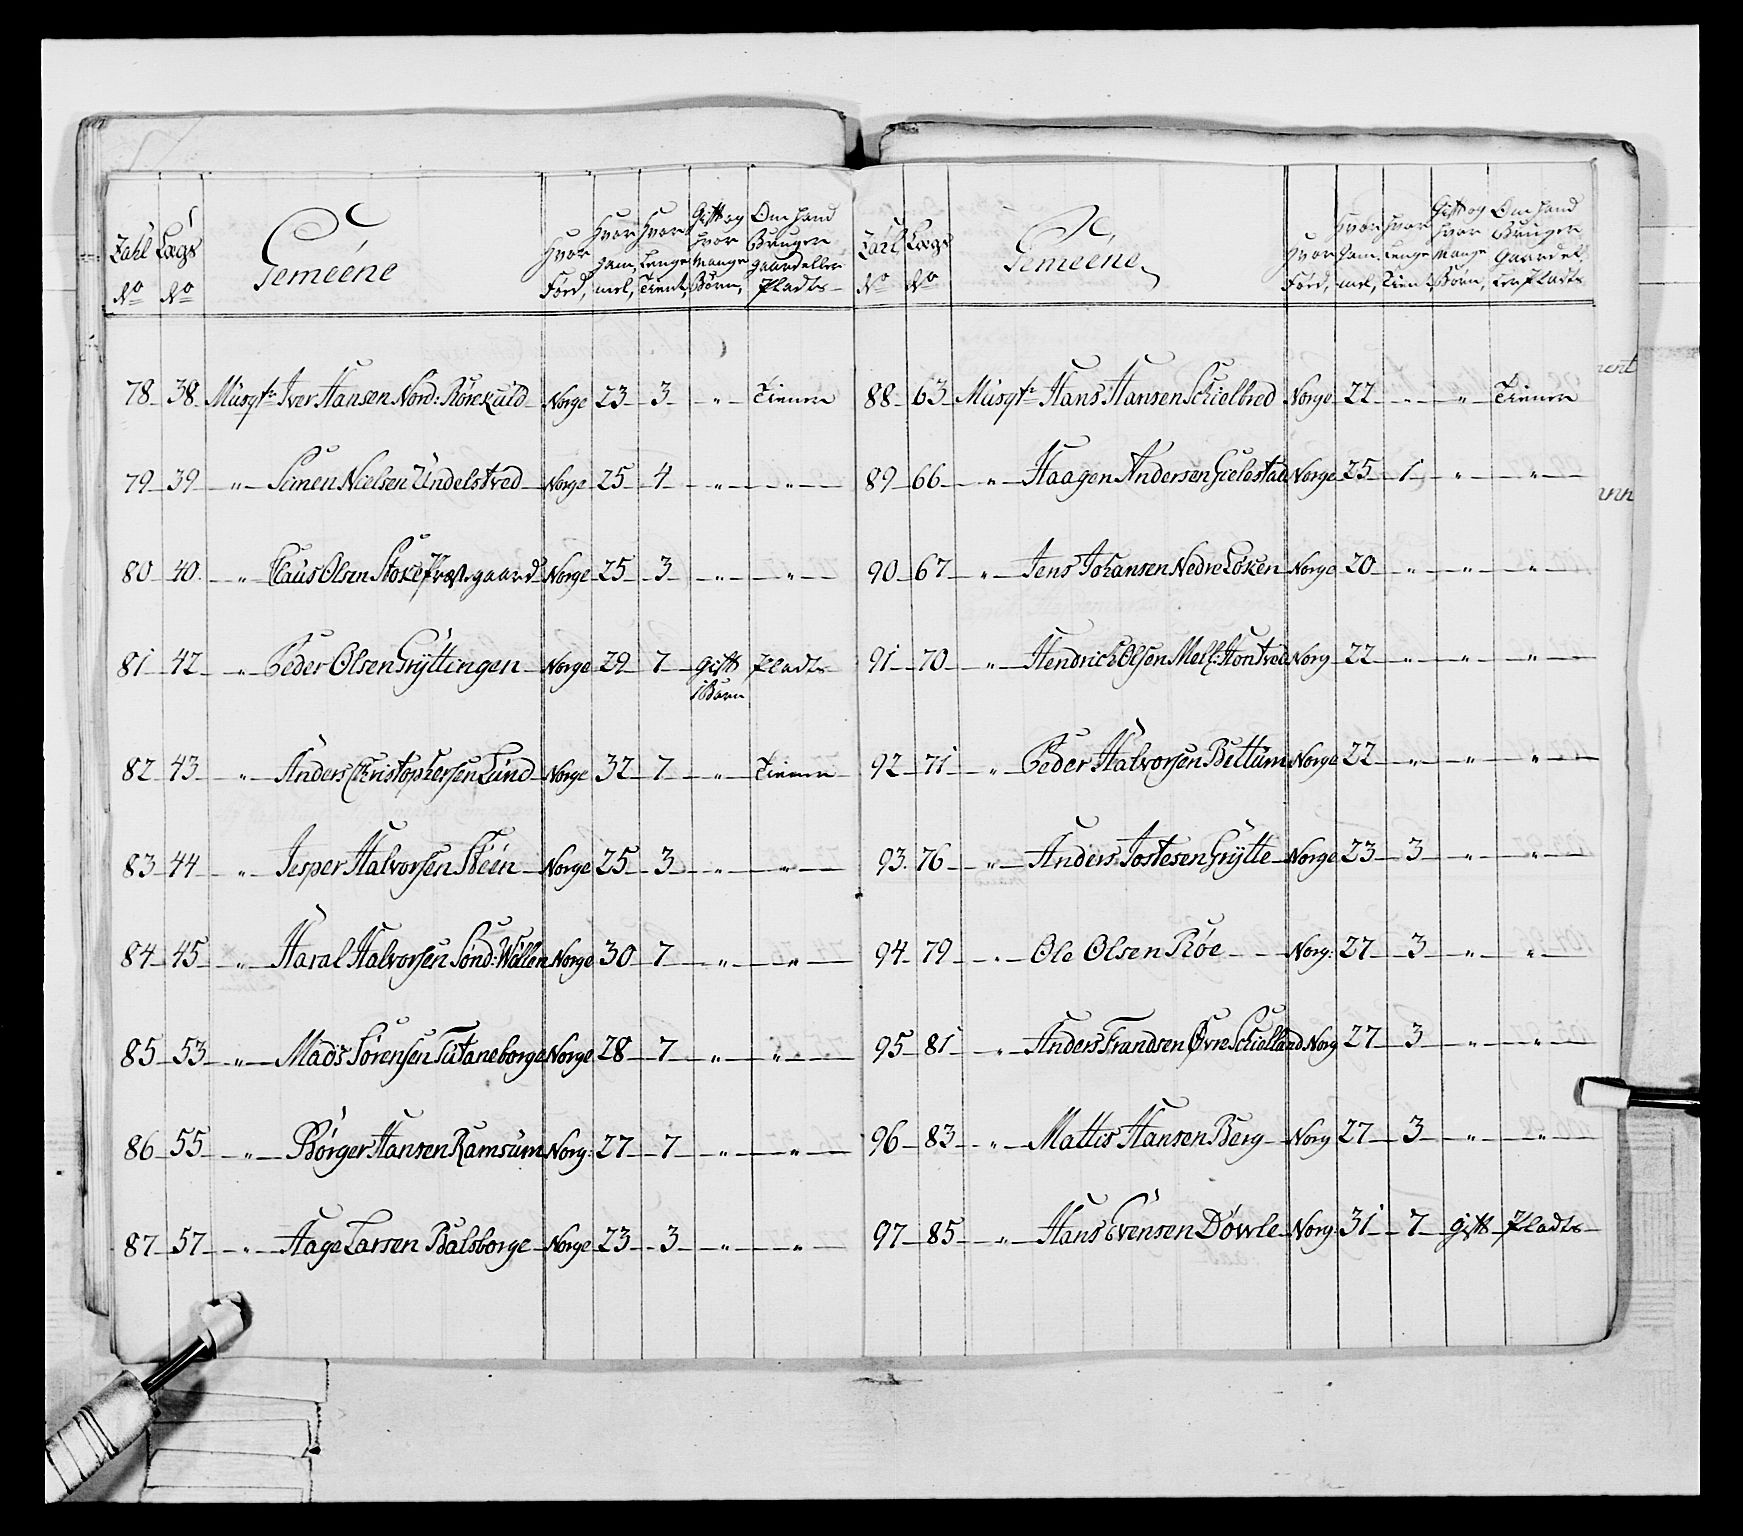 Zahl No Lægs No Gemeéne Hvor Föd, Hvor Gam- mel, Hvor Lenge Tient, Gift og Hvor Mange Börn, Om Hand Bruger gaard eller Pladts
78 38 Musqt: Iver Hansen Nord: Rörekuld Norge 23 3 " Tiener
79 39 " Simen Nielsen Undelstved Norge 25 4 " "
80 40 " Claus Olsen Stoke Præstgaard Norge 25 3 " "
81 42 " Peder Olsen Gryttingen Norge 29 7 gift 1 Barn Pladts
82 43 " Anders Christophersen Lund Norge 32 7 " Tiener
83 44 " Jesper Halvorsen Steen Norge 25 3 " "
84 45 " Haral Halvorsen Sönd: Wollen Norge 30 7 " "
85 53 " Mads Sörensen Tutaneborge Norge 28 7 " "
86 55 " Börger Hansen Ramsum Norg: 27 7 " "
87 57 " Aage Larsen Balsborge Norge 23 3 " "
Zahl No Lægs No Gemeéne Hvor Föd, Hvor Gam- mel, Hvor Lenge Tient, Gift og Hvor Mange Börn, Om Hand Bruger Gaard el- ler Pladts
88 63 Musqt: Hans Hansen Schielbred Norge 22 " " Tiener
89 66 " Haagen Andersen Gielestad Norge 25 1 " "
90 67 " Jens Johansen Nedre Löken Norge 20 " " "
91 70 " Hendrich Olsen Mell: Hontved Norg 22 " " "
92 71 " Peder Halvorsen Bettum Norge 22 " " "
93 76 " Anders Jostesen Grytte Norge 23 3 " "
94 79 " Ole Olsen Röe Norg: 27 3 " "
95 81 " Anders Frandsen Övre Schielland Norg 27 3 " "
96 83 " Mattis Hansen Berg Norg 27 3 " "
97 85 " Hans Evensen Dövle Norg: 31 7 gift Pladts